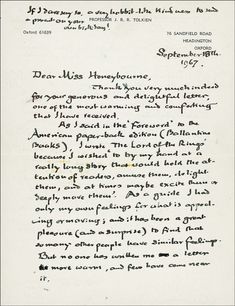 If I dare say so, a very hobbit-like kindness to send
a present on your
own birthday!
PROFESSOR J. R. R. TOLKIEN
Oxford 61639
76 SANDFIELD ROAD
HEADINGTON
OXFORD
September 18th.
1967.
Dear Miss Honeybourne,
Thank you very much indeed
for your generous and delightful letter,
one of the most warming and comforting
that I have received.
As I said in the 'Foreword' to the
American paperback edition (Ballantine
Books), I wrote The Lord of the Rings
because I wished 'to try my hand at a
really long story that would hold the at-
tention of readers, amuse them, delight
them, and at times maybe excite them or
deeply move them'. As a guide I had
only my own feelings for what is appeal-
ing or moving; and it has been a great
pleasure (and a surprise) to find that
so many other people have similar feelings.
But no one has written me a letter
more warm, and few have come near
it.